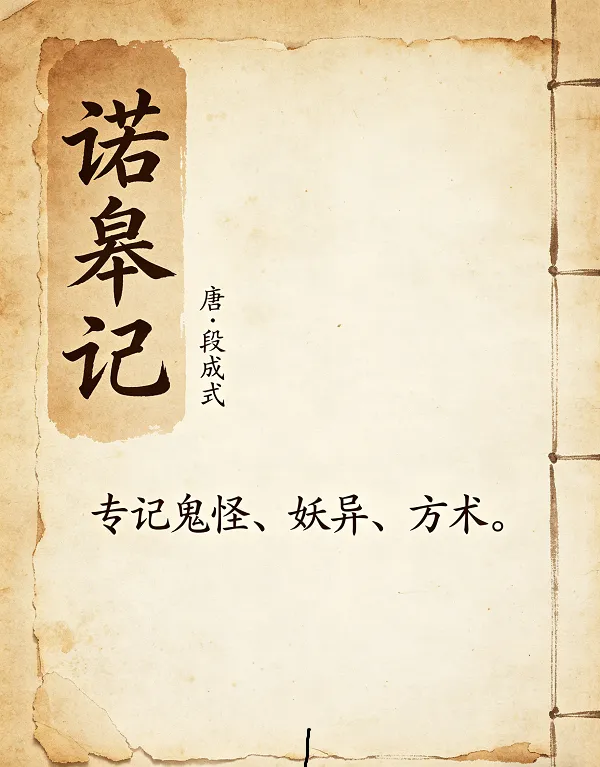 诺皋记
唐·段成式
专记鬼怪、妖异、方术。